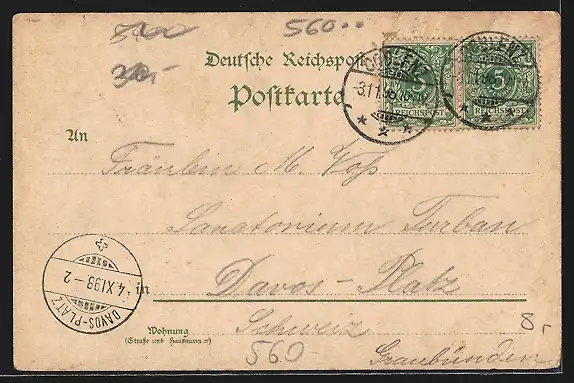 560..
Deutsche Reichspost
Postkarte
COBLENZ
3.11.98
5 5
REICHSPOST REICHSPOST
An
Fräulein M. Voß
Sanatorium Turban
in Davos-Platz
DAVOS-PLATZ
4.XI.98-2
Schweiz
Wohnung
(Straße und Hausnummer)
560-
8,-
Graubünden